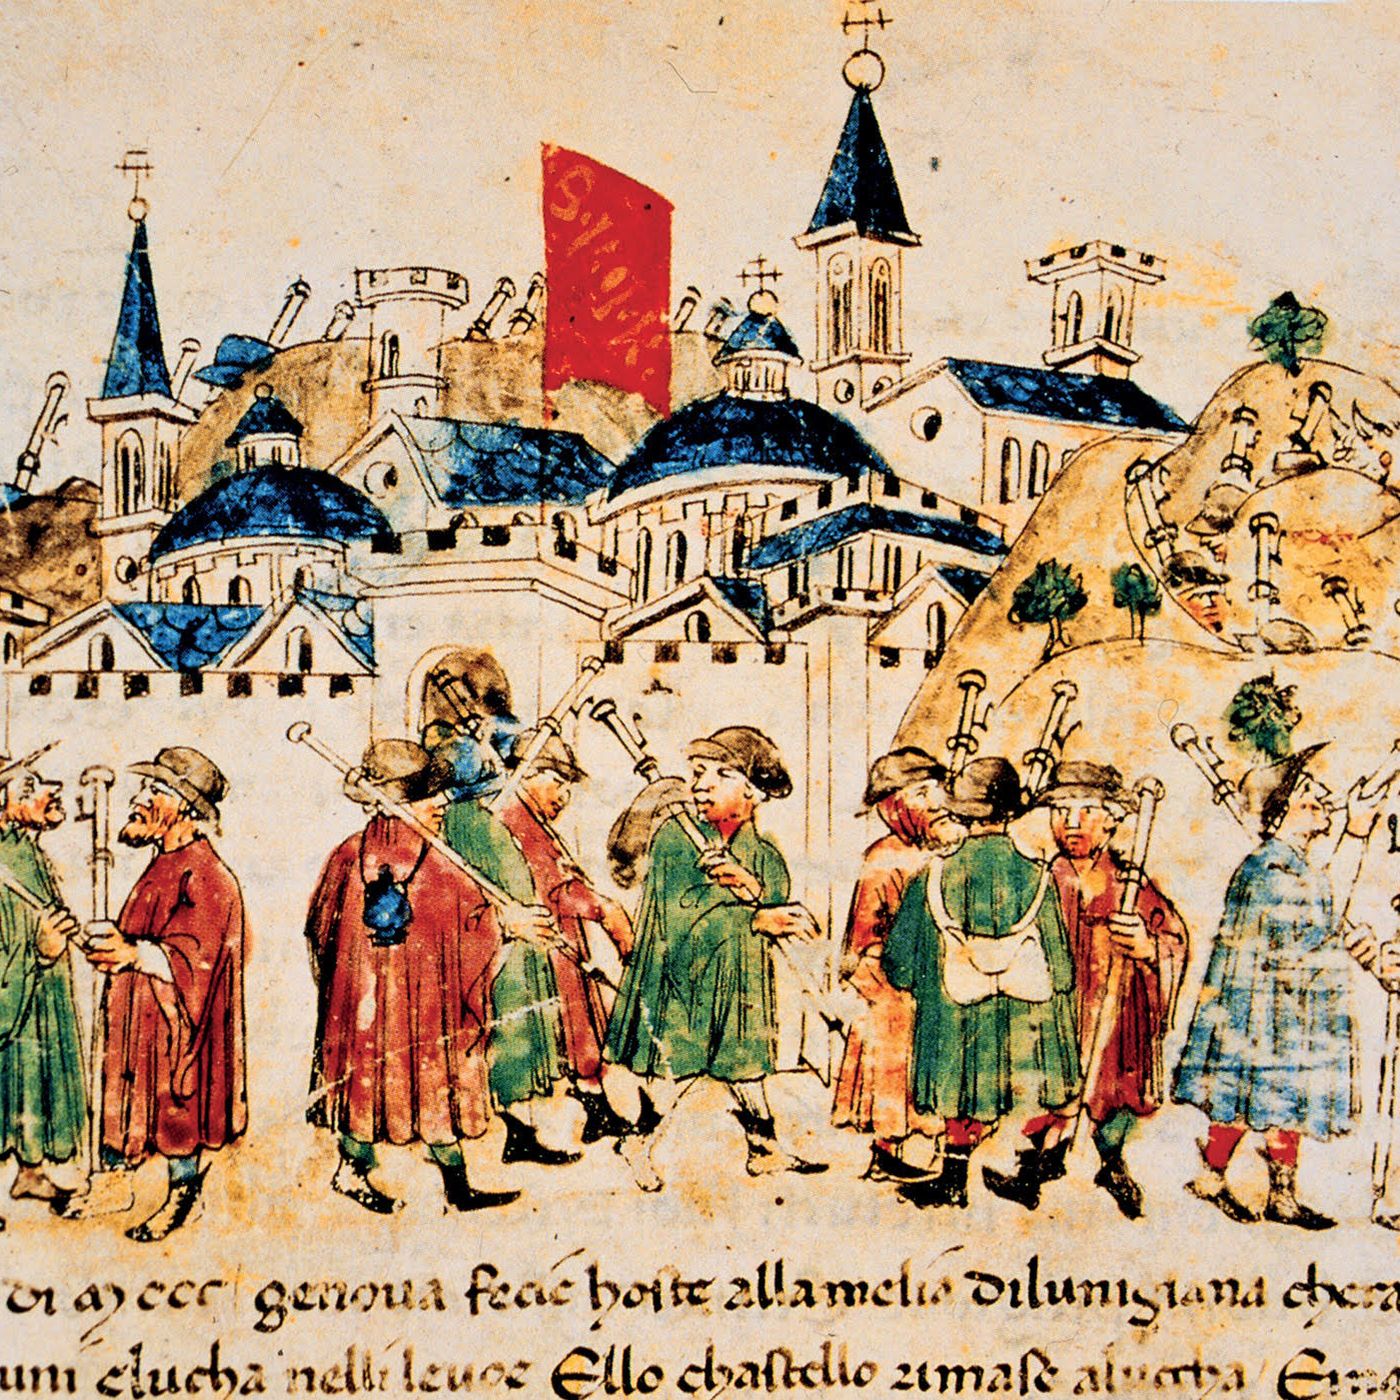 S. IIOVA
di Mccc genova fecie hoste alla melia dilunigiana che
uni elucha nelli levoe Ello chastello rimase alucha